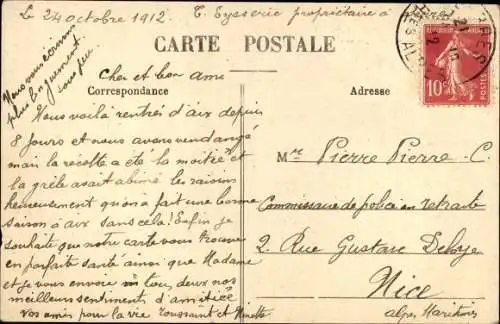 Le 24 octobre 1912 T. Eysserie propriétaire à
CARTE POSTALE
10c
POSTES
Nous vous écrirons
plus longuement
sous peu
Cher et bon ami
Correspondance
Adresse
Nous voilà rentrés d'aix depuis
8 jours et nous avons vendangé
mais la récolte a été la moitié et
la grêle avait abimé les raisins
heureusement qu'on a fait une bonne
saison à aix sans cela! Enfin je
souhaite que notre carte vous trouve
en parfaite santé ainsi que Madame
et je vous envoie de tous deux nos
meilleurs sentiments d'amitiée
Vos amis pour la vie Toussaint et Ninette
Mr Pierre Pierre C.
Commissaire de police en retraite
2. Rue Gustave Deloye
Nice
alpes Maritimes